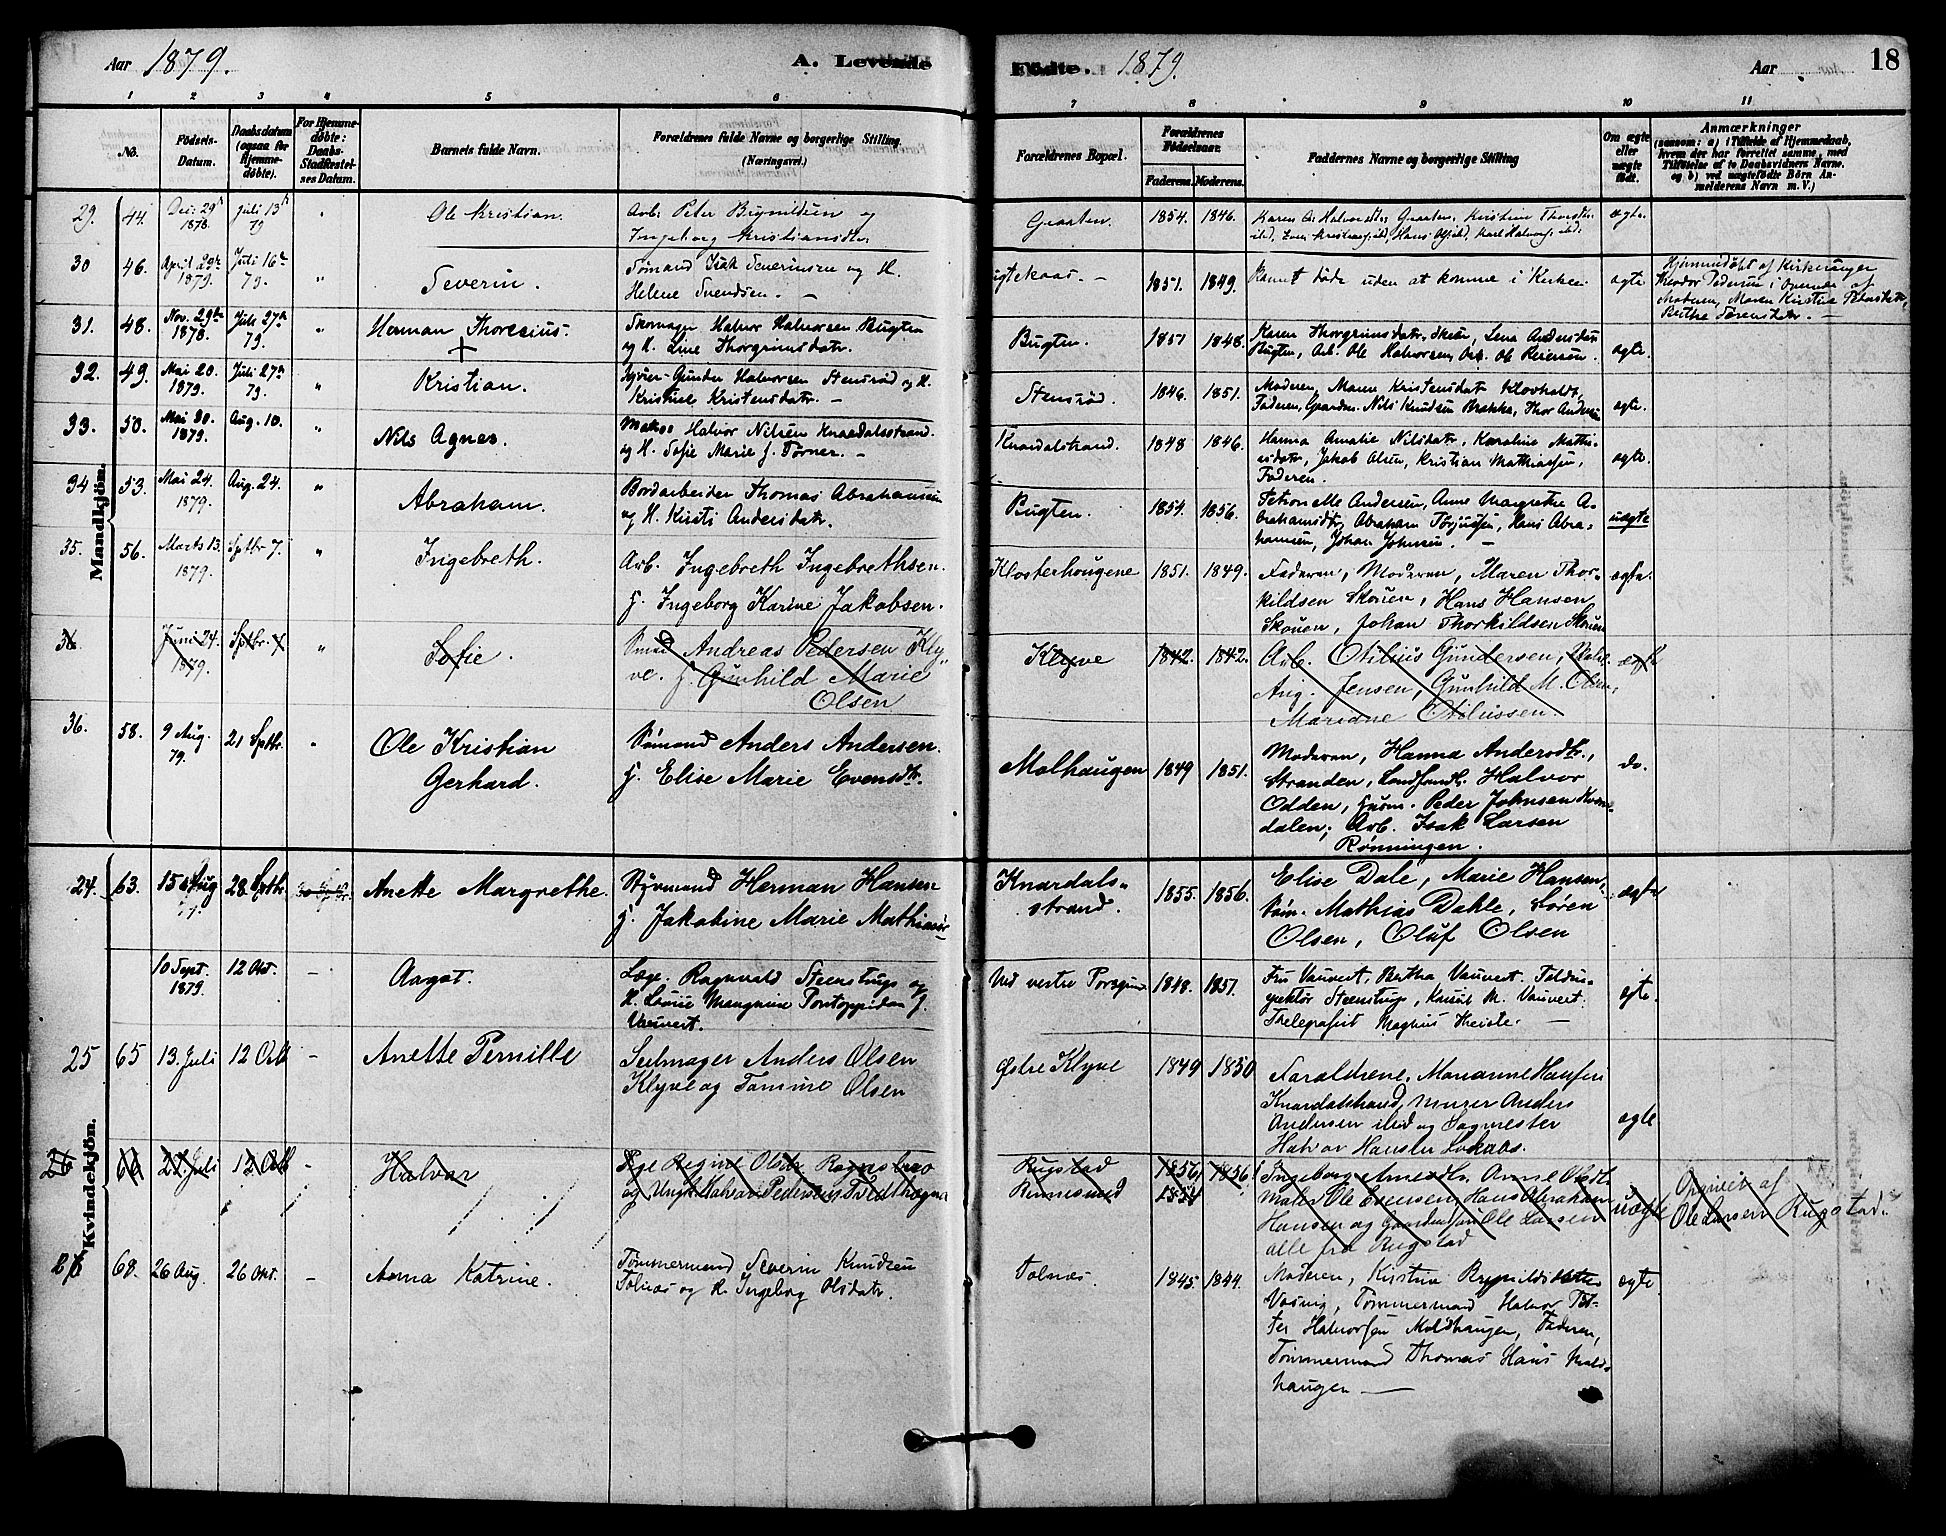 Aar 1879. A. Levende Fødte. 1879. Aar 18
1 2 3 4 5 6 7 8 9 10 11
No. Fødsels-Datum. Daabsdatum (ogsaa for Hjemmedøbte). For Hjemmedøbte: Daabs-Stadfæstelses Datum. Barnets fulde Navn. Forældrenes fulde Navne og borgerlige Stilling. (Næringsvei.) Forældrenes Bopæl. Forældrenes Fødselsaar. Faderens. Moderens. Faddernes Navne og borgerlige Stilling Om ægte eller uægte født. Anmærkninger (saasom: a) i Tilfælde af Hjemmedaab, hvem der har forrettet samme, med Tilføielse af to Daabsvidners Navne, og b) ved uægtefødte Børn Anmelderens Navn m. V.)
Mandkjøn.
29. 44. Dec. 29 1878. Juli 13 79 " Ole Kristian. Arb. Peter Brynildsen og
Ingeborg Kristiansdtr. Graaten. 1854. 1846. ægte.
30 46. April 29de 1879. Juli 16de 79. " Severin. Sømand Isak Severinsen og H.
Helene Svendsen. — 1851. 1849. Barnet døde uden at komme i Kirken. ægte
Hjemmedøbt af Kirkesanger
Theodor Pedersen i Overvær af
Moderen, Maren Kirstine
31. 48. Nov. 29de 1878. Juli 27de 79. " Herman Thoresius. Skomager Halvor Halvorsen Bugten
og H. Line Thorgrimsdatr. Bugten. 1851 1848. Karen Thorgrimsdatr. Skien, Lena Andersdatr
Bugten, Arb. Ole Halvorsen, Arb. Ole Reiersen. ægte.
32. 49. Mai 20. 1879. Juli 27de 79. " Kristian. Gunder Halvorsen Stensrød og H.
Kristine Kristensdatr. — Stensrød. 1846. 1851. Moderen, Maren Kristensdatr Klovholt,
Faderen, Gaardm. Nils Knudsen Brekke, Thor Andersen ægte.
33. 50. Mai 30. 1879. Aug. 10. " Nils Agner. Halvor Nilsen Knardalsstrand.
og H. Sofie Marie f. Tørner. — Knardalstrand. 1848 1846. Hanna Amalie Nilsdatr, Karoline Mathi-
sdatr, Jakob Olsen, Kristian Mathiassen,
Faderen. ægte.
34 53. Mai 24. 1879. Aug. 24. " Abraham. Bordarbeider Thomas Abrahamsen
og H. Kirsti Andersdatr. Bugten. 1854. 1856. Petronelle Andersen, Anne Margrethe A-
brahamsdtr, Abraham Torjussen, Hans Abra-
hamsen, Johan Johnsen. — uægte
35. 56. Marts 13. 1879. Septbr 7. " Ingebreth. Arb. Ingebreth Ingebrethsen.
f. Ingeborg Karine Jakobsen. Klosterhougene 1851. 1849. Faderen, Moderen, Maren Thor-
kildsen Skouen, Hans Hansen
Skouen, Johan Thorkildsen Skouen ægte.
36 Juni 24. 1879. Septbr. 7 " Sofie. Smed Andreas Pedersen Kly-
ve. f. Gunhild Marie
Olsen Klyve 1842. 1842. Arb. Otilius Gundersen,
Aug. Jensen, Gunhild M. Olsen,
Mariane Otiliussen. ægte
36. 58. 9 Aug. 79. 21 Septbr. " Ole Kristian
Gerhard. Sømand Anders Andersen.
f. Elise Marie Evensdtr. Molhaugen 1849 1851. Moderen, Hanna Andersdtr.,
Stranden, Landhandl. Halvor
Odden, Peder Johnsen
dalen, Arb. Isak Larsen
Rønningen. do.
Kvindekjøn.
24. 63. 15 Aug 79. 28 Septbr. Anette Margrethe. Styrmand Herman Hansen
f. Jakobine Marie Knardals-
strand. 1855. 1856. Elise Dale, Marie Hansen,
Søm. Mathias Dahle, Søren
Olsen, Oluf Olsen ægte
10 Sept. 1879. 12 Okt. — Aagot. Læge Ragnvald Steenstrup og
H. Louise Mangrine Pontoppidan f.
Vauvert. Ved vestre Porsgrund 1848. 1851. Fru Vauvert, Bertha Vauvert.
Steenstrup, Knud M. Vauvert.
Thelegrafist Magnus Heiste. — ægte.
25 65 13. Juli 12 Oktb — Anette Pernille Seilmager Anders Olsen
Klyve og Tomine Olsen Østre Klyve 1849 1850 Forældrene, Marianne Hansen
Knardalstrand, Murer Anders
Andersen ibid og Sagmester
Halvor Hansen ægte
26 66 21. Juli 12 Oktb — Halvor Pige Regine Olsdtr
og Ungk. Halvor Pedersen Rugstad
1856 1854 1856 Ingeborg Amedtr. Anne Olsdtr
Ole Evensen, Hans Abraham
Hansen og Gaardm. Ole Larsen
alle fra Rugstad uægte Opgivet af
Ole Larsen Rugstad.
26 68. 26 Aug. 26 Okt. — Anna Katrine. Tømmermand Severin Knudsen
Tolnæs og H. Ingeborg Olsdatr. Tolnæs. 1845. 1844. Moderen, Kirstine Brynildsdatter
Tømmermand Halvor Pet-
ter Halvorsen Moldhaugen, Faderen,
Tømmermand Thomas Hans Mold-
haugen — ægte